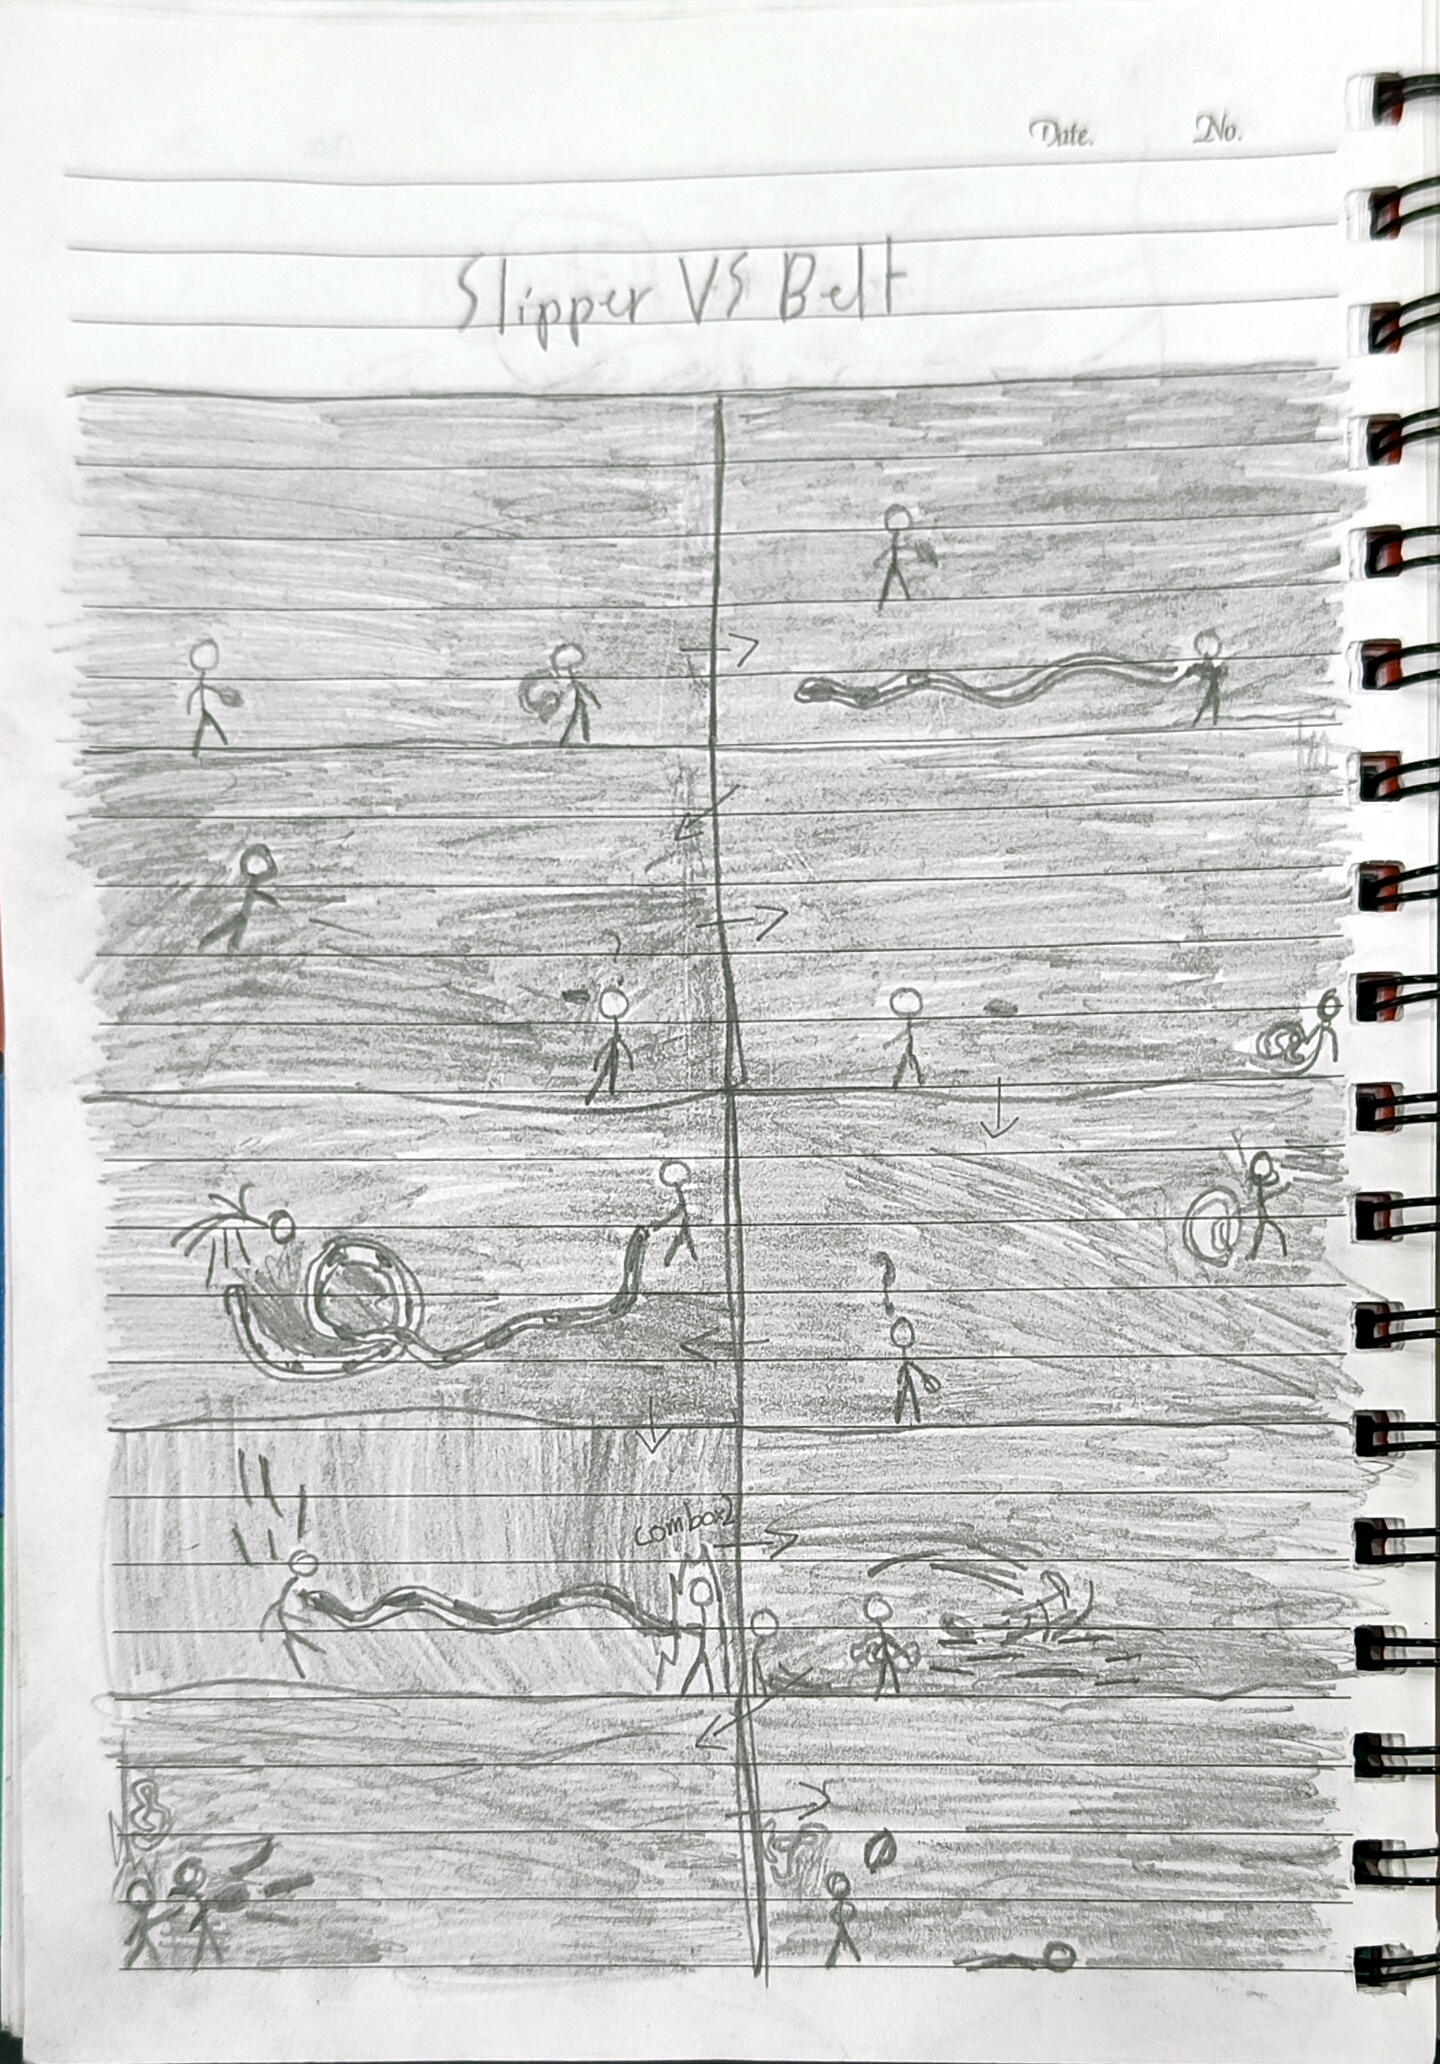 Date. No.
Slipper VS Belt
?
?
combox2